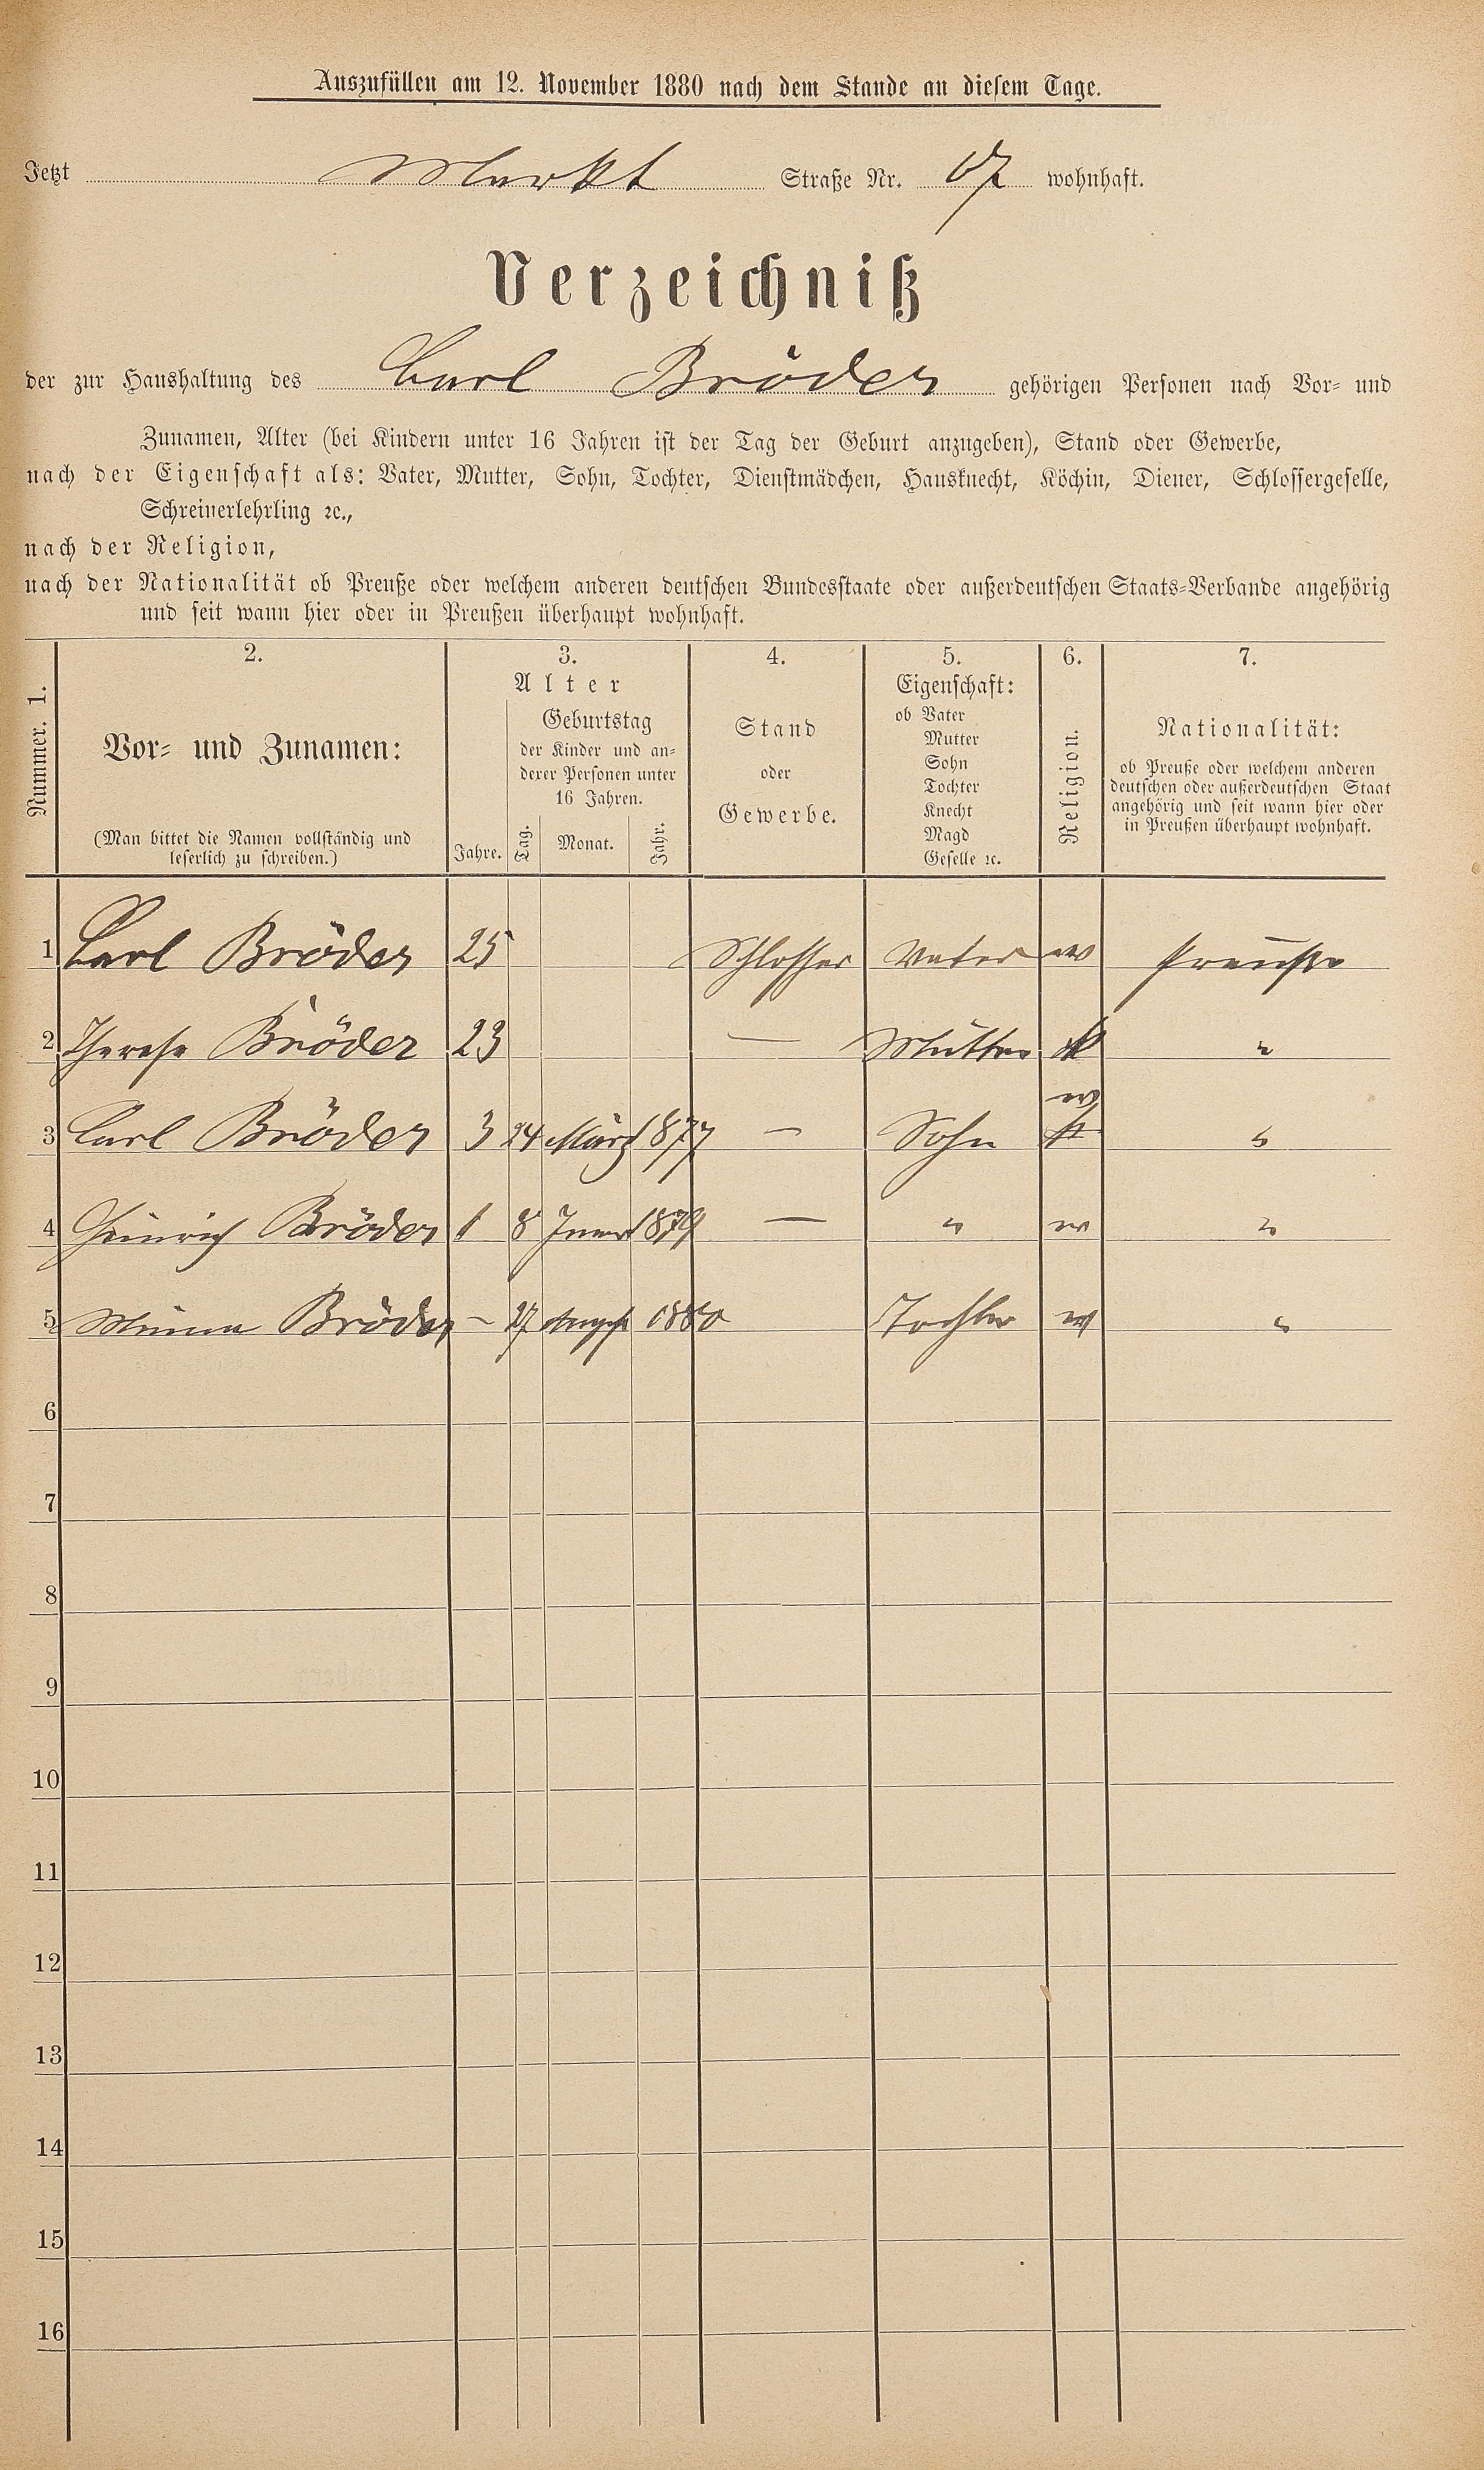 Auszufüllen am 12. November 1880 nach dem Stande an diesem Tage.
Jetzt Markt Straße Nr. wohnhaft.
Verzeichniß
der zur Haushaltung des Carl Bröder gehörigen Personen nach Vor- und
Zunamen, Alter (bei Kindern unter 16 Jahren ist der Tag der Geburt anzugeben), Stand oder Gewerbe,
nach der Eigenschaft als: Vater, Mutter, Sohn, Tochter, Dienstmädchen, Hausknecht, Köchin, Diener, Schlossergeselle,
Schreinerlehrling ꝛc.,
nach der Religion,
nach der Nationalität ob Preuße oder welchem anderen deutschen Bundesstaate oder außerdeutschen Staats-Verbande angehörig
und seit wann hier oder in Preußen überhaupt wohnhaft.
Nummer. 1.
2.
Vor- und Zunamen:
(Man bittet die Namen vollständig und
leserlich zu schreiben.)
3.
Alter
Jahre.
Geburtstag
der Kinder und an-
derer Personen unter
16 Jahren.
Tag. Monat. Jahr.
4.
Stand
oder
Gewerbe.
5.
Eigenschaft:
ob Vater
Mutter
Sohn
Tochter
Knecht
Magd
Geselle ꝛc.
6.
Religion.
7.
Nationalität:
ob Preuße oder welchem anderen
deutschen oder außerdeutschen Staat
angehörig und seit wann hier oder
in Preußen überhaupt wohnhaft.
1 Carl Bröder 25 Schlosser Vater Preuße
2 Therese Bröder 23 — Mutter k "
3 Carl Bröder 3 24 März 1877 — Sohn "
4 Heinrich Bröder 1 8 Januar 1879 — " "
5 Minna Bröder – 27 August 1880 Tochter "
6
7
8
9
10
11
12
13
14
15
16